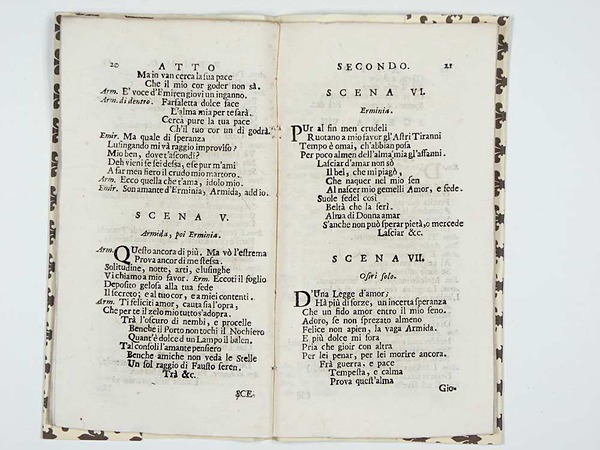 20 ATTO
Ma in van cerca la sua pace
Che il mio cor goder non sà.
Arm. E' voce d'Emiren giovi un inganno.
Arm. di dentro. Farfaletta dolce face
L'alma mia per te farà.
Cerca pure la tua pace
Ch'il tuo cor un dì godrà.
Emir. Ma quale di speranza
Lusingando mi và raggio improviso?
Mio ben, dove t'ascondi?
Deh vieni se sei desso, e se pur m'ami
A far men fiero il crudo mio martoro.
Arm. Ecco quella che t'ama, idolo mio.
Emir. Son amante d'Erminia, Armida, addio.
SCENA V.
Armida, poi Erminia.
Arm. QUesto ancora di più. Ma vò l'estrema
Prova ancor di me stessa.
Solitudine, notte, arti, e lusinghe
Vi chiamo a mio favor. Erm. Eccoti il foglio
Deposito gelosa alla tua fede
Il secreto; e al tuo cor, e a miei contenti.
Arm. Ti felicitì amor, cauta sia l'opra,
Che per te il zelo mio tutto s'adopra.
Trà l'oscuro di nembi, e procelle
Benche il Porto non tochi il Nochiero
Quant'è dolce d'un Lampo il balen.
Tal consoli l'amante pensiero
Benche amiche non veda le Stelle
Un sol raggio di Fausto seren.
Trà &c.
SCE-
SECONDO. 21
SCENA VI.
Erminia.
PUr al fin men crudeli
Ruotano a mio favor gl'Astri Tiranni
Tempo è omai, ch'abbian posa
Per poco almen dell'alma mia gl'affanni.
Lasciar d'amar non sò
Il bel, che mi piagò,
Che naquer nel mio sen
Al nascer mio gemelli Amor, e fede.
Suole sedel così
Beltà che la ferì.
Alma di Donna amar
S'anche non può sperar pietà, o mercede
Lasciar &c.
SCENA VII.
Osiri solo.
D'Una Legge d'amor;
Hà più di forze, un incerta speranza
Che un fido amor entro il mio seno.
Adoro, se non sprezato almeno
Felice non apien, la vaga Armida.
E più dolce mi fora
Pria che gioir con altra
Per lei penar, per lei morire ancora.
Frà guerra, e pace
Tempesta, e calma
Prova quest'alma
Gio-